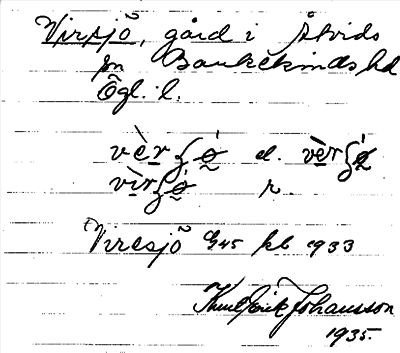 Virsjö, gård i Åtvids
sn Bankekinds hd
Ögl. l.
vèrʃó̤ el. vèrʃó̤
vìrʃó̤ r.
Viresjö G45 kb 1933
Knut Erik Johansson
1935.